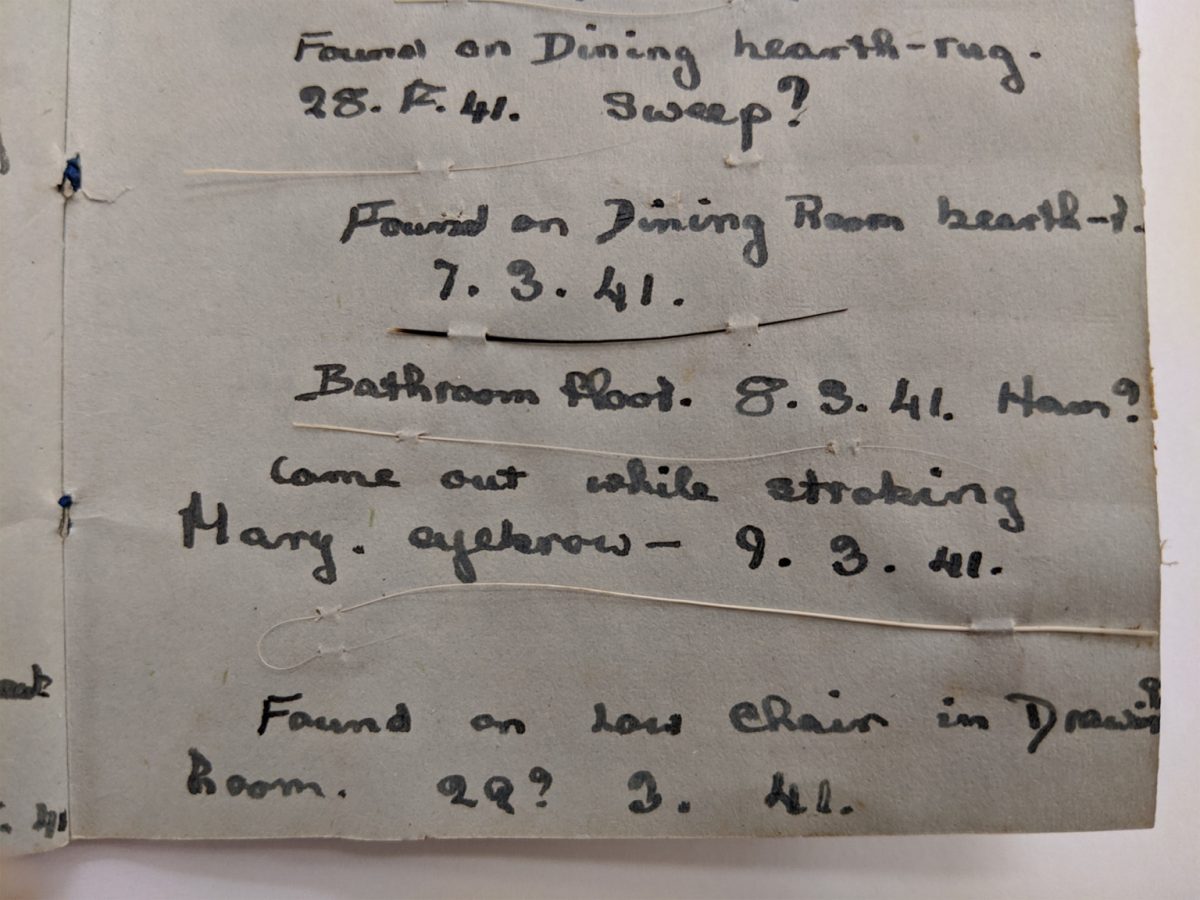 Found on Dining hearth-rug.
28. F. 41. Sweep?
Found on Dining Room hearth-r.
7. 3. 41.
Bathroom floor. 8. 3. 41. Ham?
Came out while stroking
Mary. eyebrow — 9. 3. 41.
Found on low chair in Drawing
Room. 22? 3. 41.
41